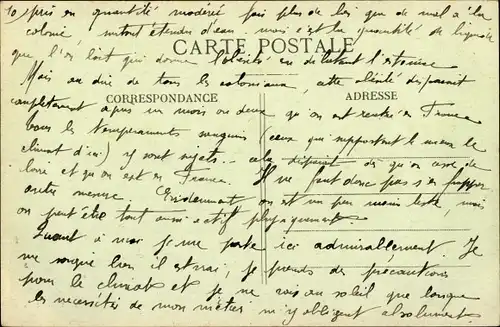 pris en quantité modérée fait plus de bien que de mal à la
colonie, surtout étendu d'eau mais c'est la quantité de liquide
CARTE POSTALE
que l'on boit qui donne l'obésité en dilatant l'estomac
Mais au dire de tous les coloniaux, cette obésité disparaît
CORRESPONDANCE ADRESSE
complètement après un mois ou deux qu'on est rentré en France
Tous les tempéraments sanguins (ceux qui supportent le mieux le
climat d'ici) y sont sujets.. cela disparaît dès qu'on cesse de
boire et qu'on est en France. Il ne faut donc pas s'en frapper
outre mesure. Evidemment on est un peu moins leste, mais
on peut être tout aussi actif physiquement.
Quant à moi je me porte ici admirablement. Je
me soigne bien il est vrai, je prends des précautions
pour le climat et je ne vais au soleil que lorsque
les nécessités de mon métier m'y obligent absolument